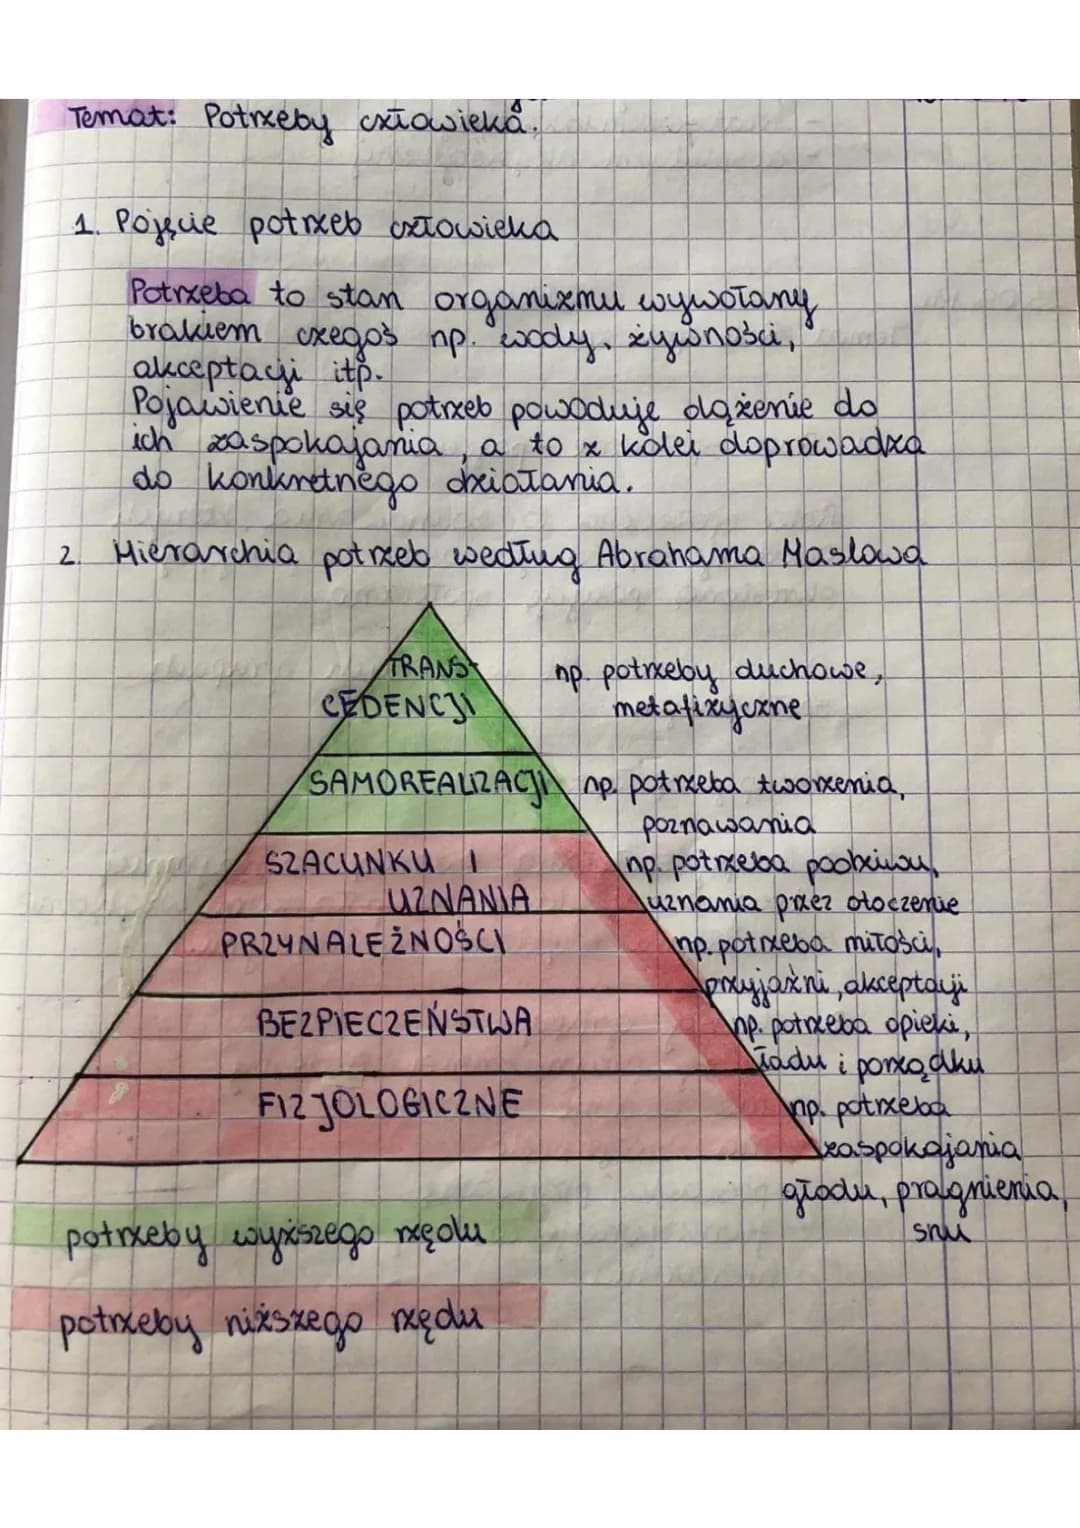 Temat: Potrzeby człowieka.
1. Pojęcie potrzeb człowieka
Potrzeba to stan organizmu wywołany
brakiem czegoś np. wody, żywności,
akceptacji itp.
Pojawienie się potrzeb powoduje dążenie do
ich zaspokajania, a to z kolei doprowadza
do konkretnego działania.
2. Hierarchia potrzeb według Abrahama Maslowa
TRANS-
CEDENCJI
np. potrzeby duchowe,
metafizyczne
SAMOREALIZACJI
np. potrzeba tworzenia,
poznawania
SZACUNKU I
UZNANIA
np. potrzeba podziwu,
uznania przez otoczenie
PRZYNALEŻNOŚCI
np. potrzeba miłości,
przyjaźni, akceptacji
BEZPIECZEŃSTWA
np. potrzeba opieki,
ładu i porządku
FIZJOLOGICZNE
np. potrzeba
zaspokajania
głodu, pragnienia,
snu
potrzeby wyższego rzędu
potrzeby niższego rzędu